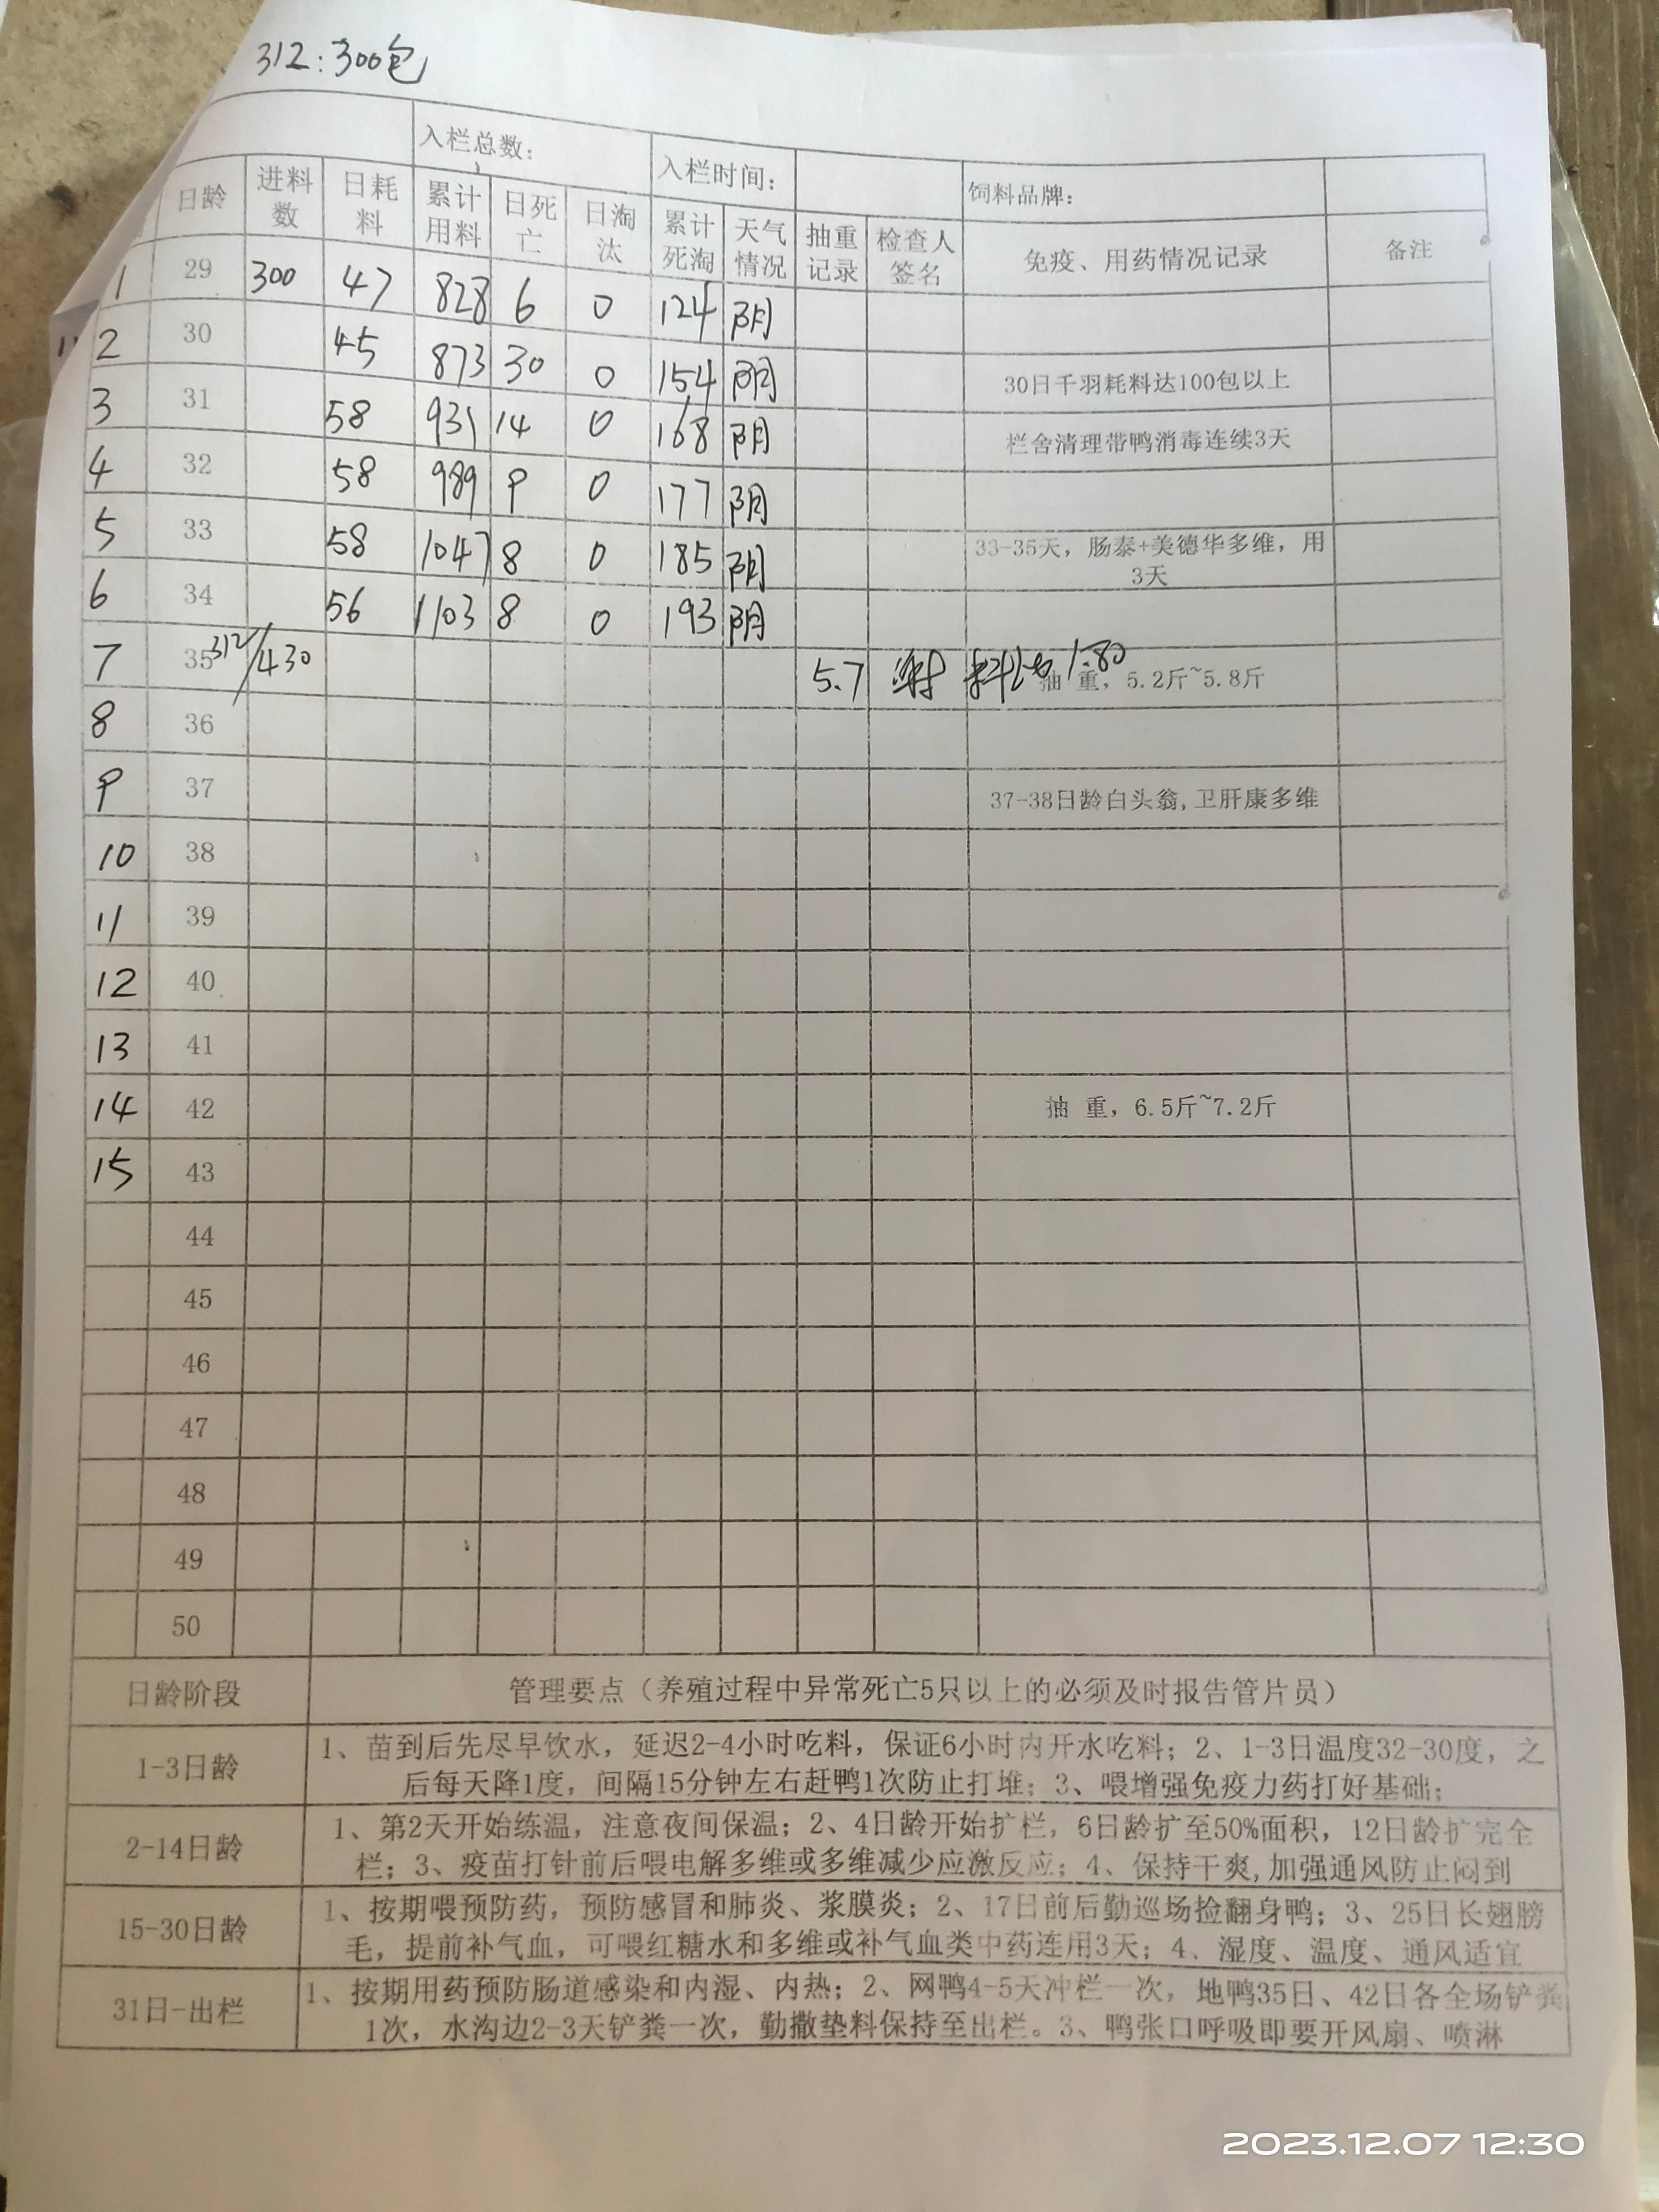 312:300包
入栏总数: 入栏时间: 饲料品牌:
日龄 进料数 日耗料 累计用料 日死亡 日淘汰 累计死淘 天气情况 抽重记录 检查人签名 免疫、用药情况记录 备注
1 29 300 47 828 6 0 124 阴
2 30 45 873 30 0 154 阴 30日千羽耗料达100包以上
3 31 58 931 14 0 168 阴 栏舍清理带鸭消毒连续3天
4 32 58 989 9 0 177 阴
5 33 58 1047 8 0 185 阴 33-35天，肠泰+美德华多维，用3天
6 34 56 1103 8 0 193 阴
7 35 312/430 5.7 料比 1.80 抽 重，5.2斤~5.8斤
8 36
9 37 37-38日龄白头翁,卫肝康多维
10 38
11 39
12 40
13 41
14 42 抽 重，6.5斤~7.2斤
15 43
44
45
46
47
48
49
50
日龄阶段 管理要点（养殖过程中异常死亡5只以上的必须及时报告管片员）
1-3日龄 1、苗到后先尽早饮水，延迟2-4小时吃料，保证6小时内开水吃料；2、1-3日温度32-30度，之
后每天降1度，间隔15分钟左右赶鸭1次防止打堆；3、喂增强免疫力药打好基础；
2-14日龄 1、第2天开始练温，注意夜间保温；2、4日龄开始扩栏，6日龄扩至50%面积，12日龄扩完全
栏；3、疫苗打针前后喂电解多维或多维减少应激反应；4、保持干爽,加强通风防止闷到
15-30日龄 1、按期喂预防药，预防感冒和肺炎、浆膜炎；2、17日前后勤巡场捡翻身鸭；3、25日长翅膀
毛，提前补气血，可喂红糖水和多维或补气血类中药连用3天；4、湿度、温度、通风适宜
31日-出栏 1、按期用药预防肠道感染和内湿、内热；2、网鸭4-5天冲栏一次，地鸭35日、42日各全场铲粪
1次，水沟边2-3天铲粪一次，勤撒垫料保持至出栏。3、鸭张口呼吸即要开风扇、喷淋
2023.12.07 12:30